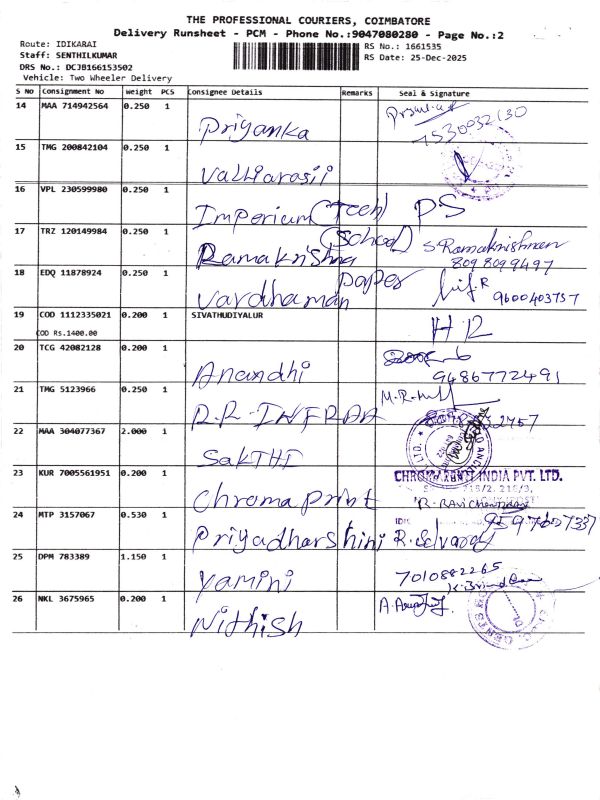 THE PROFESSIONAL COURIERS, COIMBATORE
Delivery Runsheet - PCM - Phone No.:9047080280 - Page No.:2
Route: IDIKARAI RS No.: 1661535
Staff: SENTHILKUMAR RS Date: 25-Dec-2025
DRS No.: DCJB166153502
Vehicle: Two Wheeler Delivery
S No Consignment No Weight PCS Consignee Details Remarks Seal & Signature
14 MAA 714942564 0.250 1 Priyanka 7530032130
15 TMG 200842104 0.250 1 Valliarasii
16 VPL 230599980 0.250 1 Imperium (Tech) PS
17 TRZ 120149984 0.250 1 Ramakrishna (School) S. Ramakrishnan 8098099497
18 EDQ 11878924 0.250 1 Vardhaman paper 9600403737
19 COD 1112335021 0.200 1 SIVATHUDIYALUR H R
COD Rs.1400.00
20 TCG 42082128 0.200 1 Anandhi 9486772491
21 TMG 5123966 0.250 1 R.R-INFRAA M.R.
22 MAA 304077367 2.000 1 SAKTHI
23 KUR 7005561951 0.200 1 Chroma print INDIA PVT. LTD.
R. Ravichandran
24 MTP 3157067 0.530 1 Priyadharshini R. Selvaraj
25 DPM 783389 1.150 1 Yamini 7010882265
26 NKL 3675965 0.200 1 Nithish